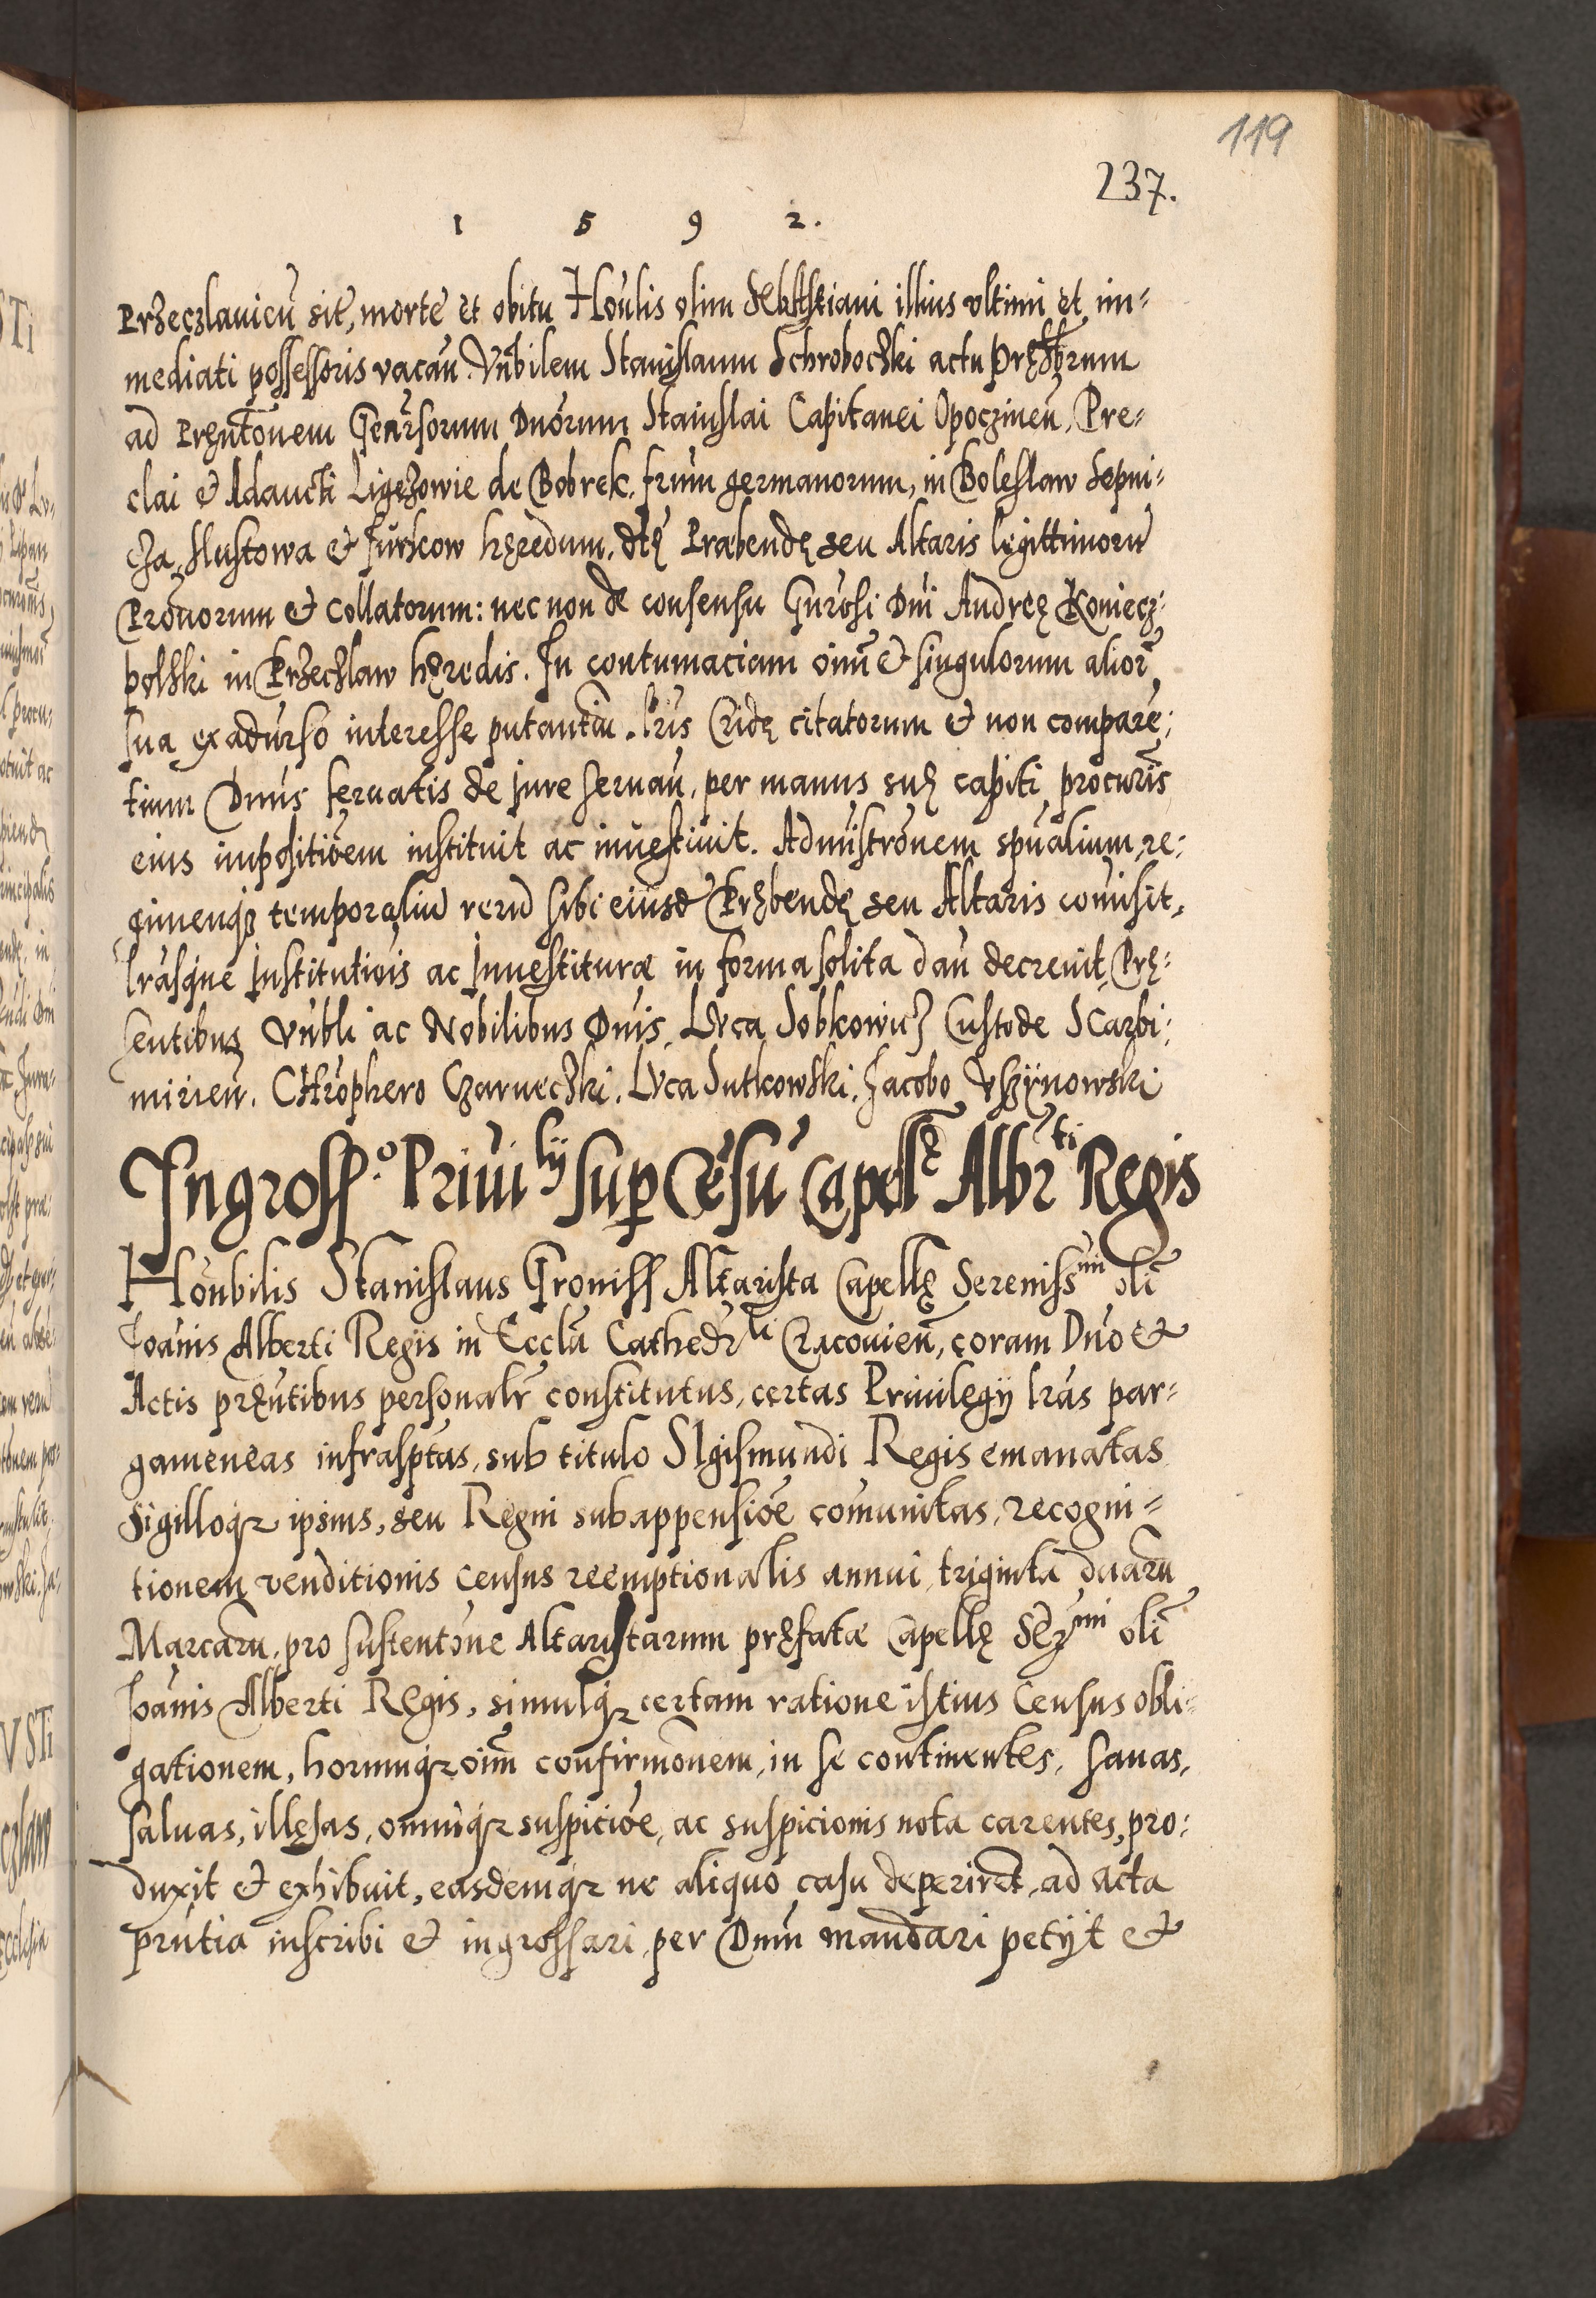 119
237.
1 5 9 2.
Przeczlauicũ sit, morte et obitu Honlis olim Sebastiani illius vltimi et im=
mediati possessoris vacan̄. Vn̄bilem Stanislaum Schroboczki actu Pręsbrum
ad Pręntōnem Genrsorum Dnōrum Stainslai Capitanei Opoczinen̄, Pre=
clai & Adaucti Ligęzowie de Bobrek, frūm germanorum, in Boleslaw Sepni=
cza, Slustowa & Jurkow hęredum, dtę Prabendę seu Altaris legittimorũ
Prōuorum & Collatorum: nec non de consensu Gnrosi Dni Andreę Koniecz=
polski in Przeczlaw hęredis. In contumaciam oīnm & singulorum alior̃
sua ex aduerso interesse putantiũ. Lris Cridę citatorum & non compare=
tium Dnūs seruatis de jure seruan̄, per manus suę capiti procuris
eius impositiōem instituit ac inuestiuit. Admistrōnem spūalium, re=
gimenq̧ temporaliũ rerũ sibi eiusd̃ Prębendę seu Altaris comisit,
lrāsqne Institutiōis ac Inuestituræ in forma solita dan̄ decreuit, Prę=
sentibus Vn̄bli ac Nobilibus Dnis, Luca Sobkowicz Custode Scarbi=
mirien̄. Chrōphero Czarneczki, Luca Sutkowski, Jacobo Vszynowski
Ingross.o Priuilÿ sup Cēsu Capellę Albrti Regis
Honbilis Stanislaus Groniss Altarista Capellę Serenissmi oli
Joānis Alberti Regis in Eccla Cathedrli Cracouien̄, coram Dno &
Actis pręntibus personalr constitutus, certas Priuilegÿ lrās par=
gameneas infrasptas, sub titulo Sigismundi Regis emanatas
Sigilloq̧ ipsius, seu Regni subappensiōe comunitas, recogni=
tionem venditionis census reemptionalis annui triginta duarũ
Marcarũ, pro sustentōne Altaristarum pręfatæ Capellę Sermi oli
Joānis Alberti Regis, simulq̧ certam ratione istius Census obli=
gationem, horumq̧ oīm confirmōnem, in se continentes, sanas,
saluas, illęsas, omniq̧ suspiciōe, ac suspicionis nota carentes, pro=
duxit & exhibuit, easdemq̧ ne aliquo casu deperirēt, ad acta
prn̄tia inscribi & ingrossari, per Dnūm mandari petijt &